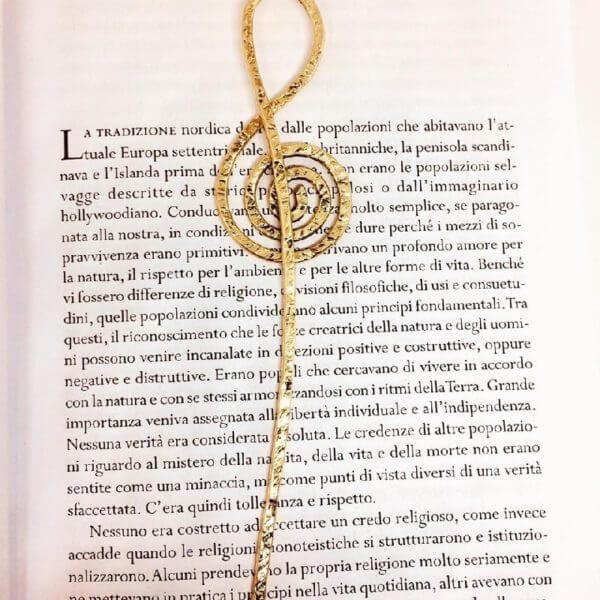 LA TRADIZIONE nordica dalle popolazioni che abitavano l'at-
tuale Europa settentri britanniche, la penisola scandi-
nava e l'Islanda prima dell' non erano le popolazioni sel-
vagge descritte da o dall'immaginario
hollywoodiano. Conducevano molto semplice, se parago-
nata alla nostra, in condizioni dure perché i mezzi di so-
pravvivenza erano primitivi. un profondo amore per
la natura, il rispetto per l'ambiente e per le altre forme di vita. Benché
vi fossero differenze di religione, visioni filosofiche, di usi e consuetu-
dini, quelle popolazioni condividevano alcuni principi fondamentali. Tra
questi, il riconoscimento che le forze creatrici della natura e degli uomi-
ni possono venire incanalate in direzioni positive e costruttive, oppure
negative e distruttive. Erano popoli che cercavano di vivere in accordo
con la natura e con se stessi armonizzandosi con i ritmi della Terra. Grande
importanza veniva assegnata alla libertà individuale e all'indipendenza.
Nessuna verità era considerata assoluta. Le credenze di altre popolazio-
ni riguardo al mistero della nascita, della vita e della morte non erano
sentite come una minaccia, ma come punti di vista diversi di una verità
sfaccettata. C'era quindi tolleranza e rispetto.
Nessuno era costretto ad accettare un credo religioso, come invece
accadde quando le religioni monoteistiche si strutturarono e istituzio-
nalizzarono. Alcuni prendevano la propria religione molto seriamente e
ne mettevano in pratica i principi nella vita quotidiana, altri avevano con